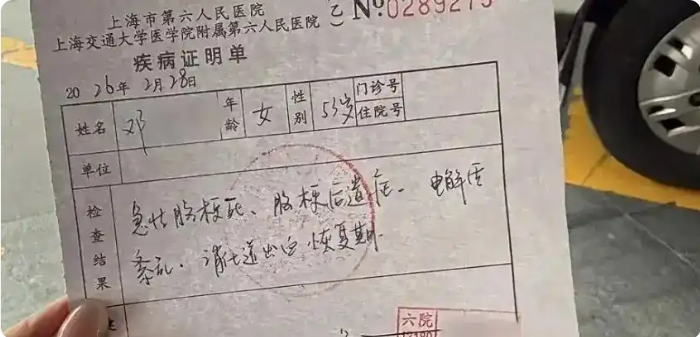 上海市第六人民医院
上海交通大学医学院附属第六人民医院 乙 No.0289275
疾病证明单
2026年2月28日
姓名 邓 年龄 女 性别 53岁 门诊号 住院号
单位
检查结果 急性脑梗死、脑梗后遗症、电解质
紊乱、消化道出血恢复期
六院